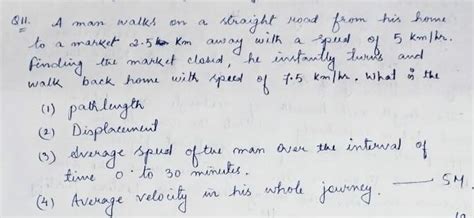 Q11. A man walks on a straight road from his home
to a market 2.5 km away with a speed of 5 km/hr.
Finding the market closed, he instantly turns and
walk back home with speed of 7.5 km/hr. What is the
(1) path length
(2) Displacement
(3) Average speed of the man over the interval of
time 0 to 30 minutes.
(4) Average velocity in his whole journey. — 5M.